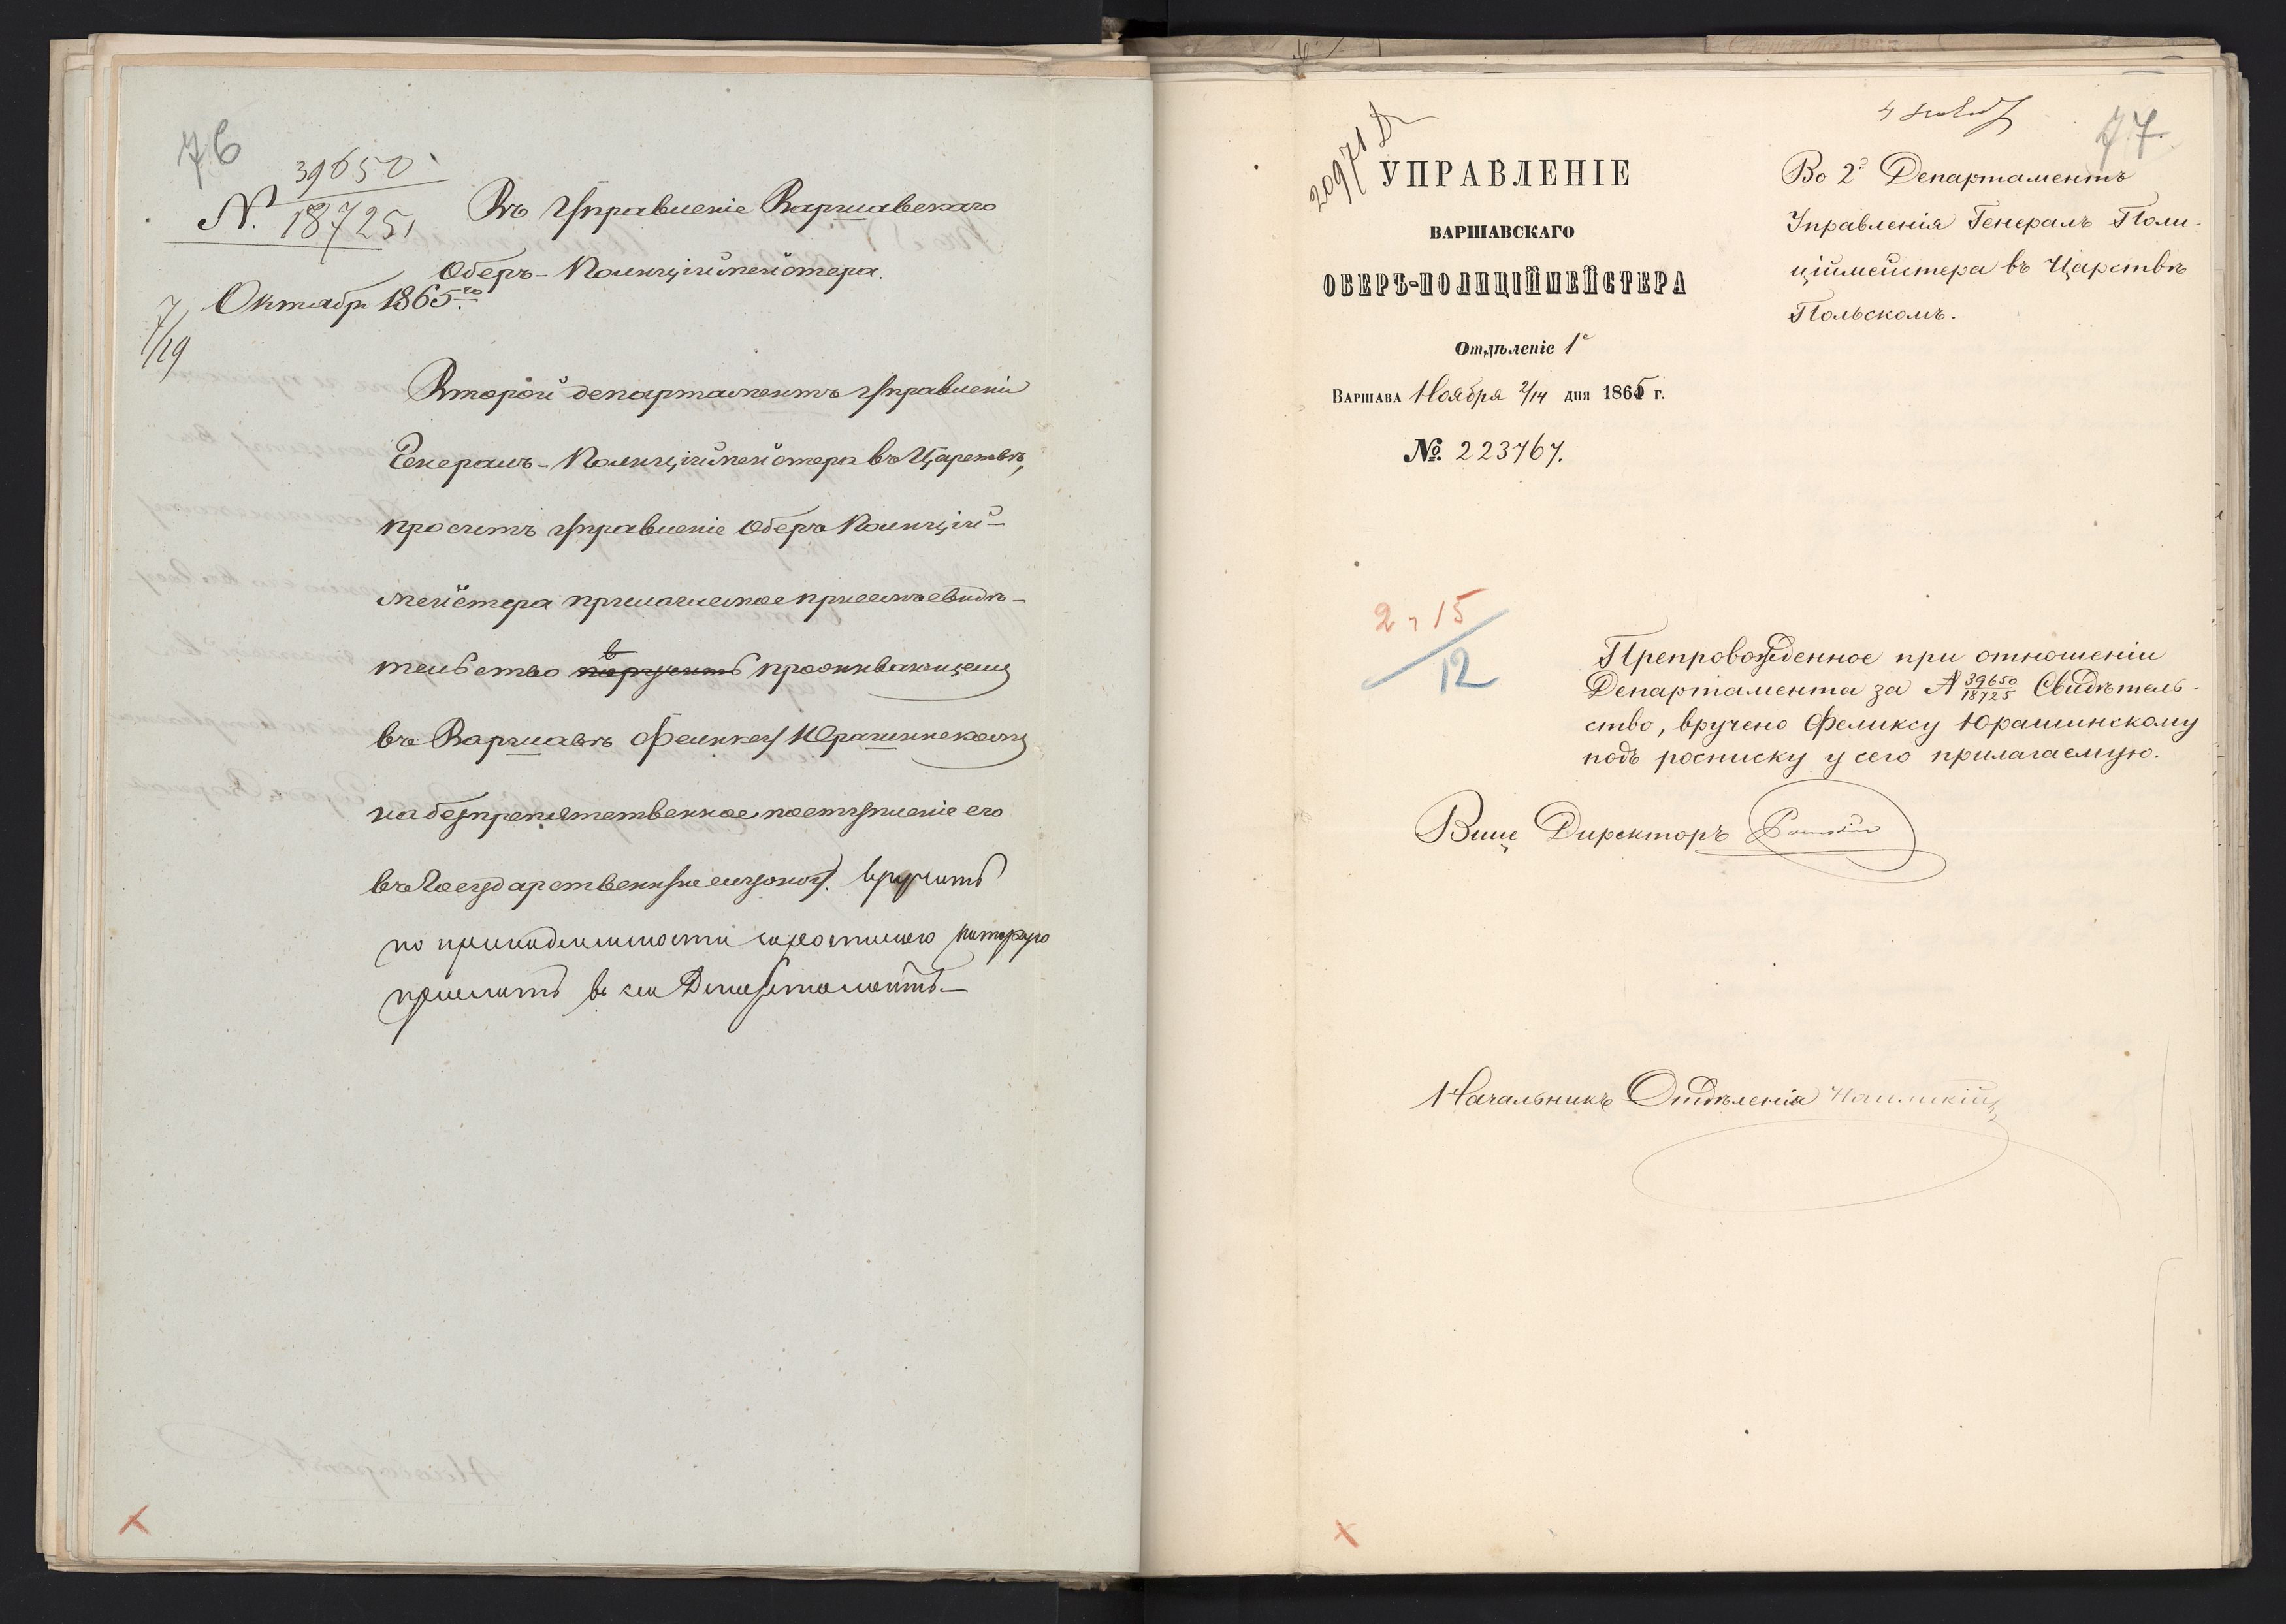 76
39650
№ 18725,
Въ Управленіе Варшавскаго
Оберъ-Полиціймейстера.
7/19 Октября 1865го.
Второй департаментъ Управленія
Генералъ-Полиціймейстера въ Царствѣ,
проситъ Управленіе Оберъ Полицій-
мейстера прилагаемое при семъ свидѣ-
тельство проживающему
въ Варшавѣ Феликсу Юрашинскому
на безпрепятственное поступленіе его
въ Государственную службу. вручить
по принадлежности которую
прислать въ сей Департаментъ
20971
4 Ноябр
77.
УПРАВЛЕНІЕ
ВАРШАВСКАГО
ОБЕРЪ-ПОЛИЦІЙМЕЙСТЕРА
Отдѣленіе 1е
Варшава Ноября 2/14 дня 1865 г.
№ 223767.
Во 2й Департаментъ
Управленія Генералъ Поли-
ціймейстера въ Царствѣ
Польскомъ.
2 15
12
Препровожденное при отношеніи
Департамента за № 39650/18725 Свидѣтель-
ство, вручено Феликсу Юрашинскому
подъ росписку у сего прилагаемую.
Вице Директоръ
Начальникъ Отдѣленія